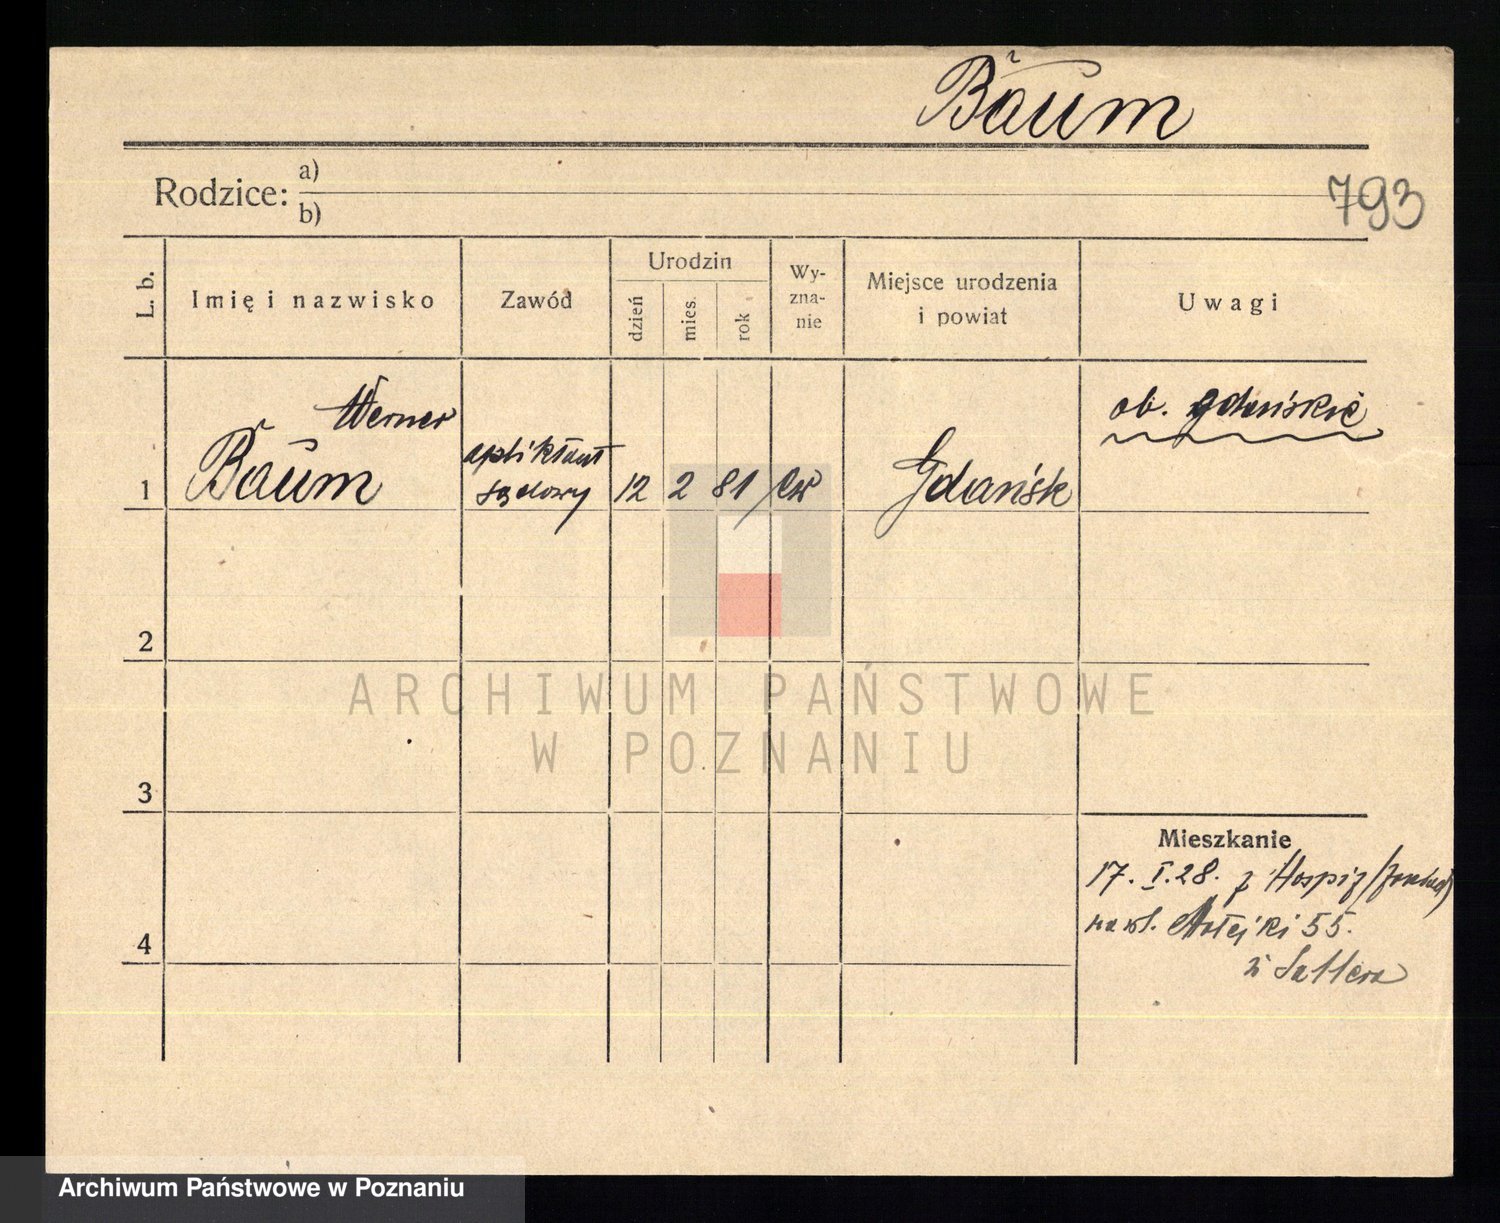 Baum
Rodzice: a)
b)
793
L. b.
Imię i nazwisko
Zawód
Urodzin
dzień
mies.
rok
Wy-
zna-
nie
Miejsce urodzenia
i powiat
Uwagi
1
Werner
Baum
aplikant
sądowy
12
2
81
ew
Gdańsk
ob. gdańskie
2
3
4
Mieszkanie
17. I. 28. z Hospiz
na ul. Matejki 55.
Sattera
ARCHIWUM PAŃSTWOWE
W POZNANIU
Archiwum Państwowe w Poznaniu